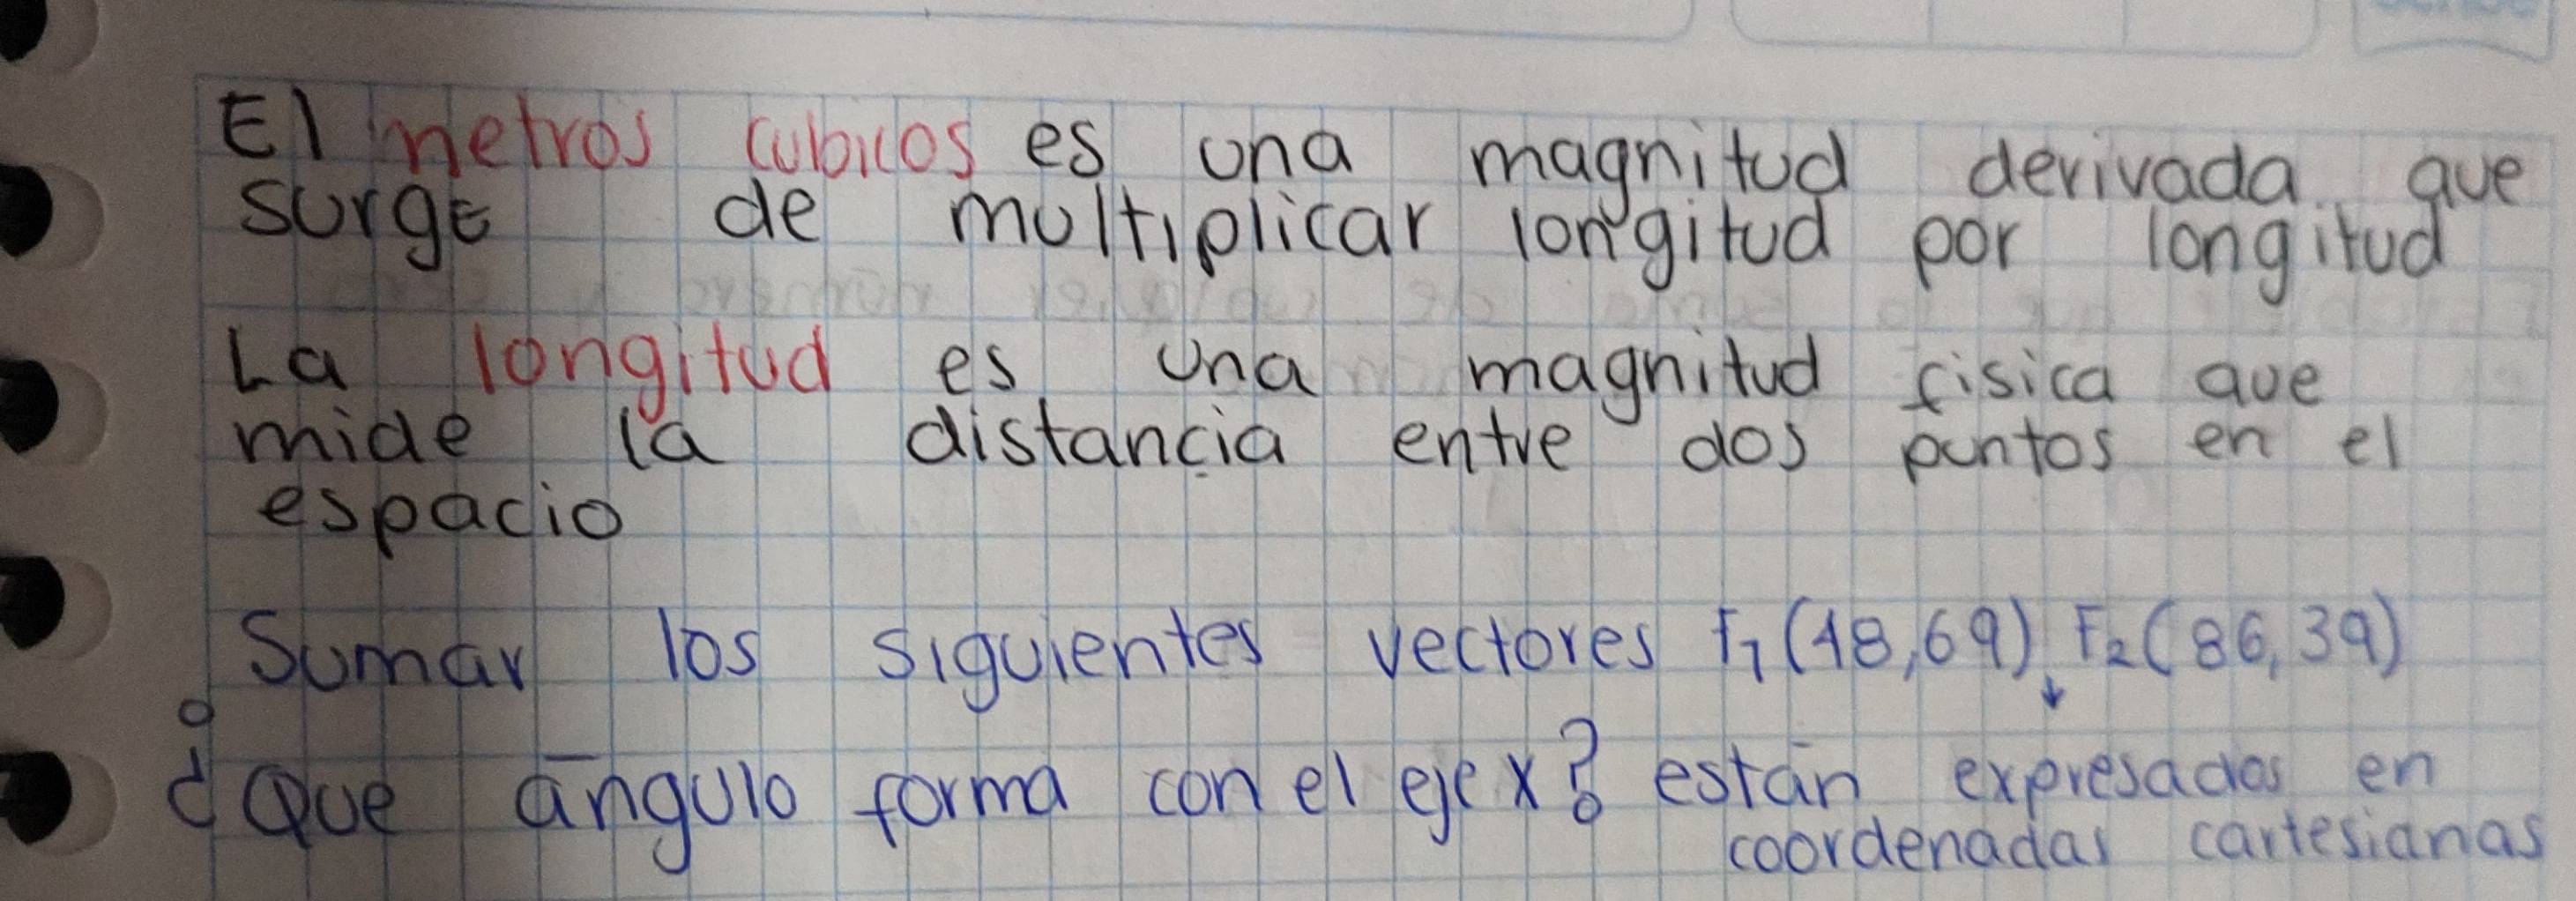 El metros cubicos es una magnitud derivada que
surge de multiplicar longitud por longitud
La longitud es una magnitud fisica que
mide la distancia entre dos puntos en el
espacio
Sumar los siguientes vectores F1 (48,69), F2 (86,39)
¿Que ángulo forma con el eje x? están expresados en
coordenadas cartesianas